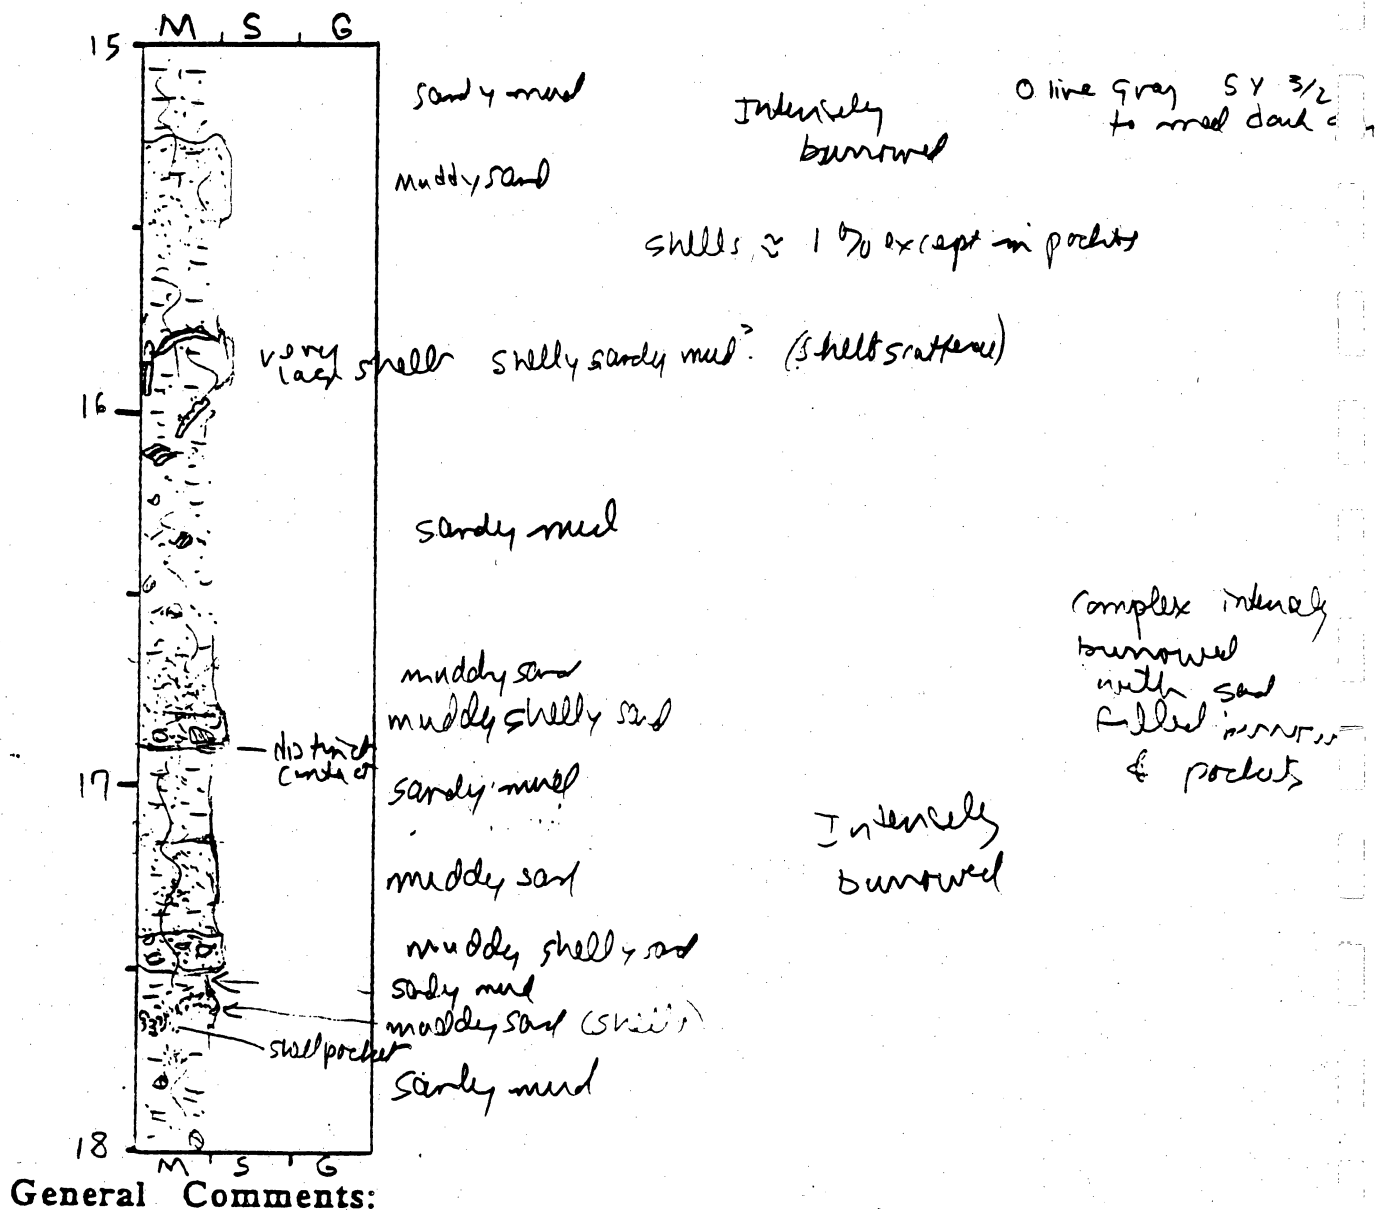 M S G
15
sandy mud
Intensively
burrowed
Olive Gray 5Y 3/2
to med dark
muddy sand
shells ≈ 1% except in pockets
very
large shell
shelly sandy mud? (shells scattered)
16
sandy mud
Complex intensely
burrowed
with sand
filled burrows
& pockets
muddy sand
muddy shelly sand
distinct
contact
17
sandy mud
Intensely
burrowed
muddy sand
muddy shelly sand
sady mud
muddy sand (shells)
shell pocket
sandy mud
18
M S G
General Comments: